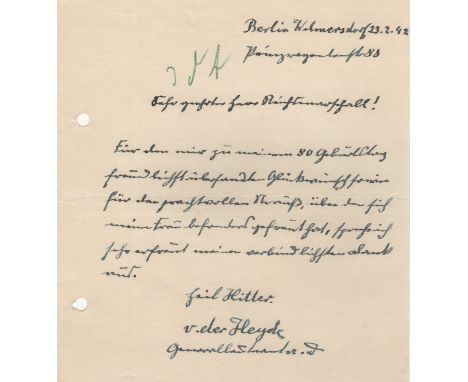 Berlin Wilmersdorf 23.2.42
Prinzregentenstr 80
Sehr geehrter Herr Reichsmarschall!
Für den mir zu meinem 80 Geburtstag
freundlichst übersandten Glückwunsch sowie
für den prachtvollen Strauß, über den sich
meine Frau besonders gefreut hat, spreche ich
sehr erfreut meinen verbindlichsten Dank
aus.
Heil Hitler.
v. der Heyde
Generalleutnant a. D